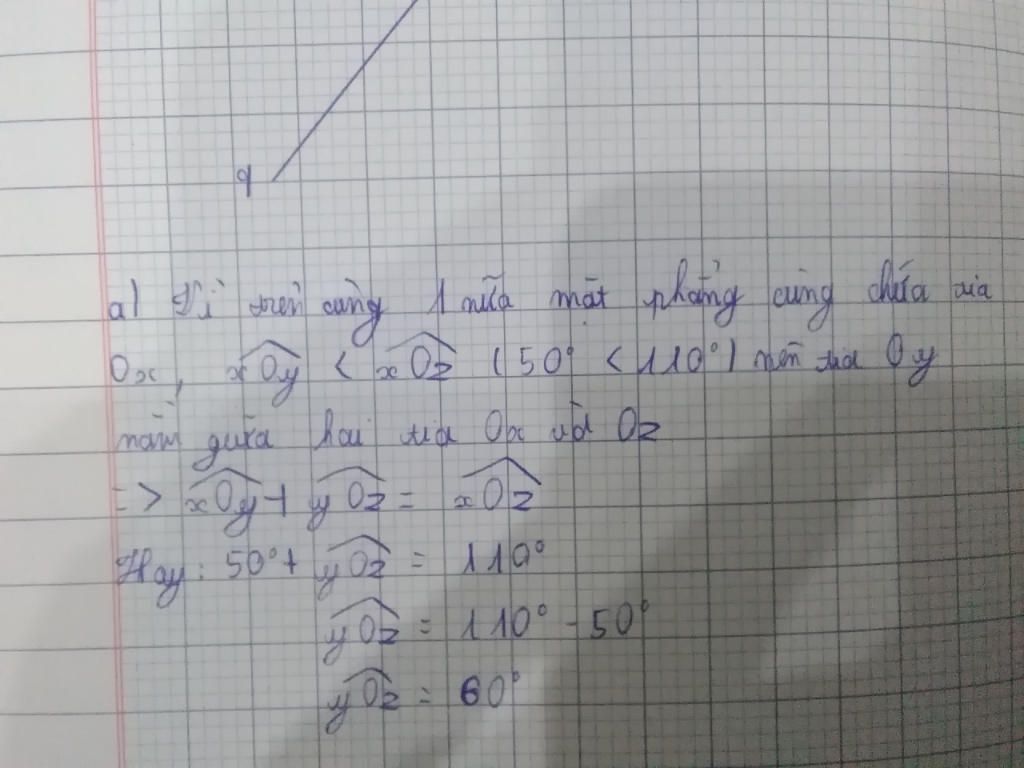 q
a) Vì trên cùng 1 nửa mặt phẳng cùng chứa tia
Ox, xOy < xOz (50° < 110°) nên tia Oy
nằm giữa hai tia Ox và Oz
=> xOy + yOz = xOz
Hay: 50° + yOz = 110°
yOz = 110° - 50°
yOz = 60°